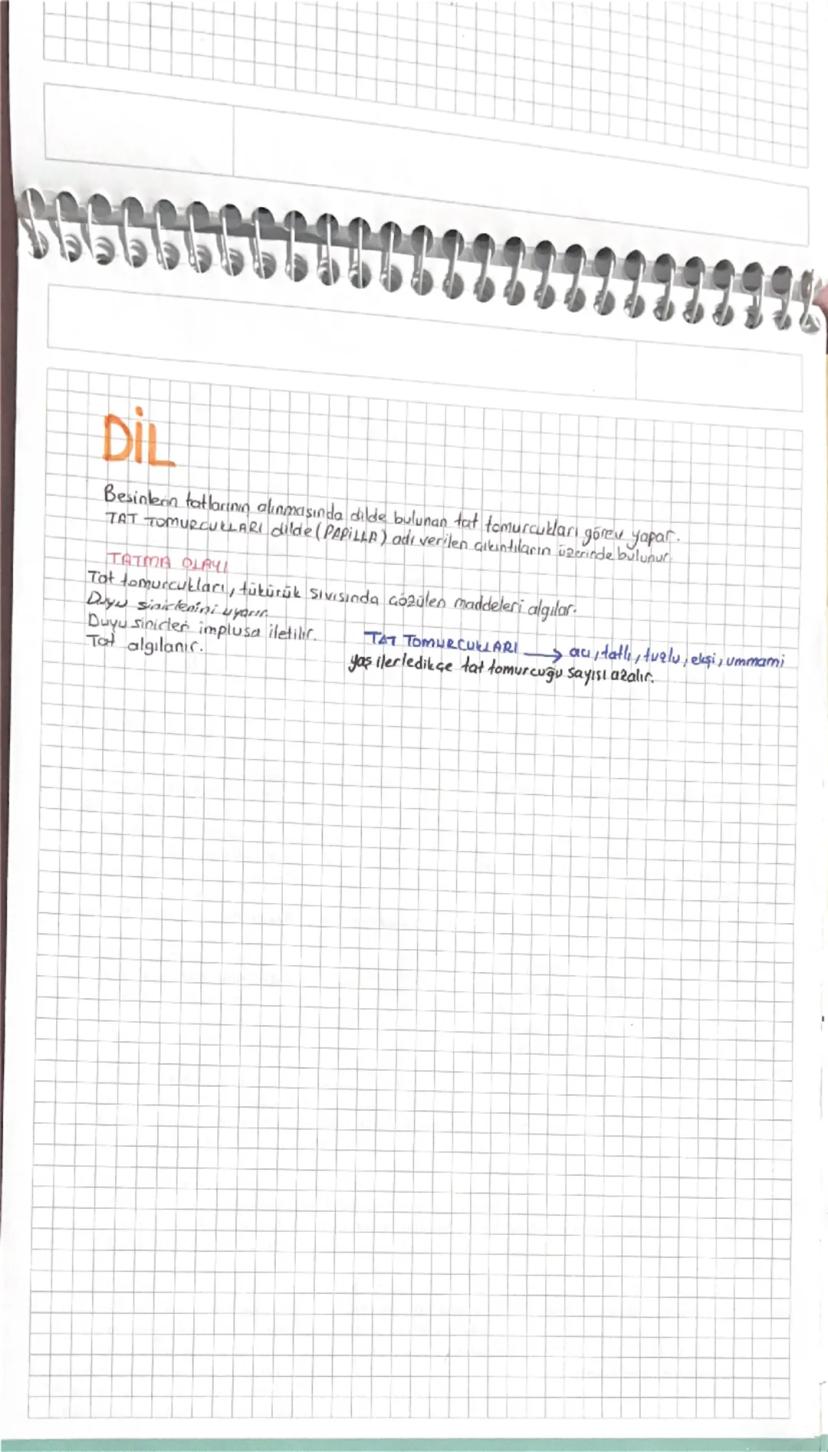 DİL
Besinlerin tatlarının alınmasında dilde bulunan tat tomurcukları görev yapar.
TAT TOMURCUKLARI dilde (PAPİLLA) adı verilen çıkıntıların üzerinde bulunur.
TATMA OLAYI
Tat tomurcukları, tükürük sıvısında çözülen maddeleri algılar.
Duyu sinirlerini uyarır.
Duyu sinirleri implusa iletilir.
Tat algılanır.
TAT TOMURCUKLARI → acı, tatlı, tuzlu, ekşi, ummami
yaş ilerledikçe tat tomurcuğu sayısı azalır.